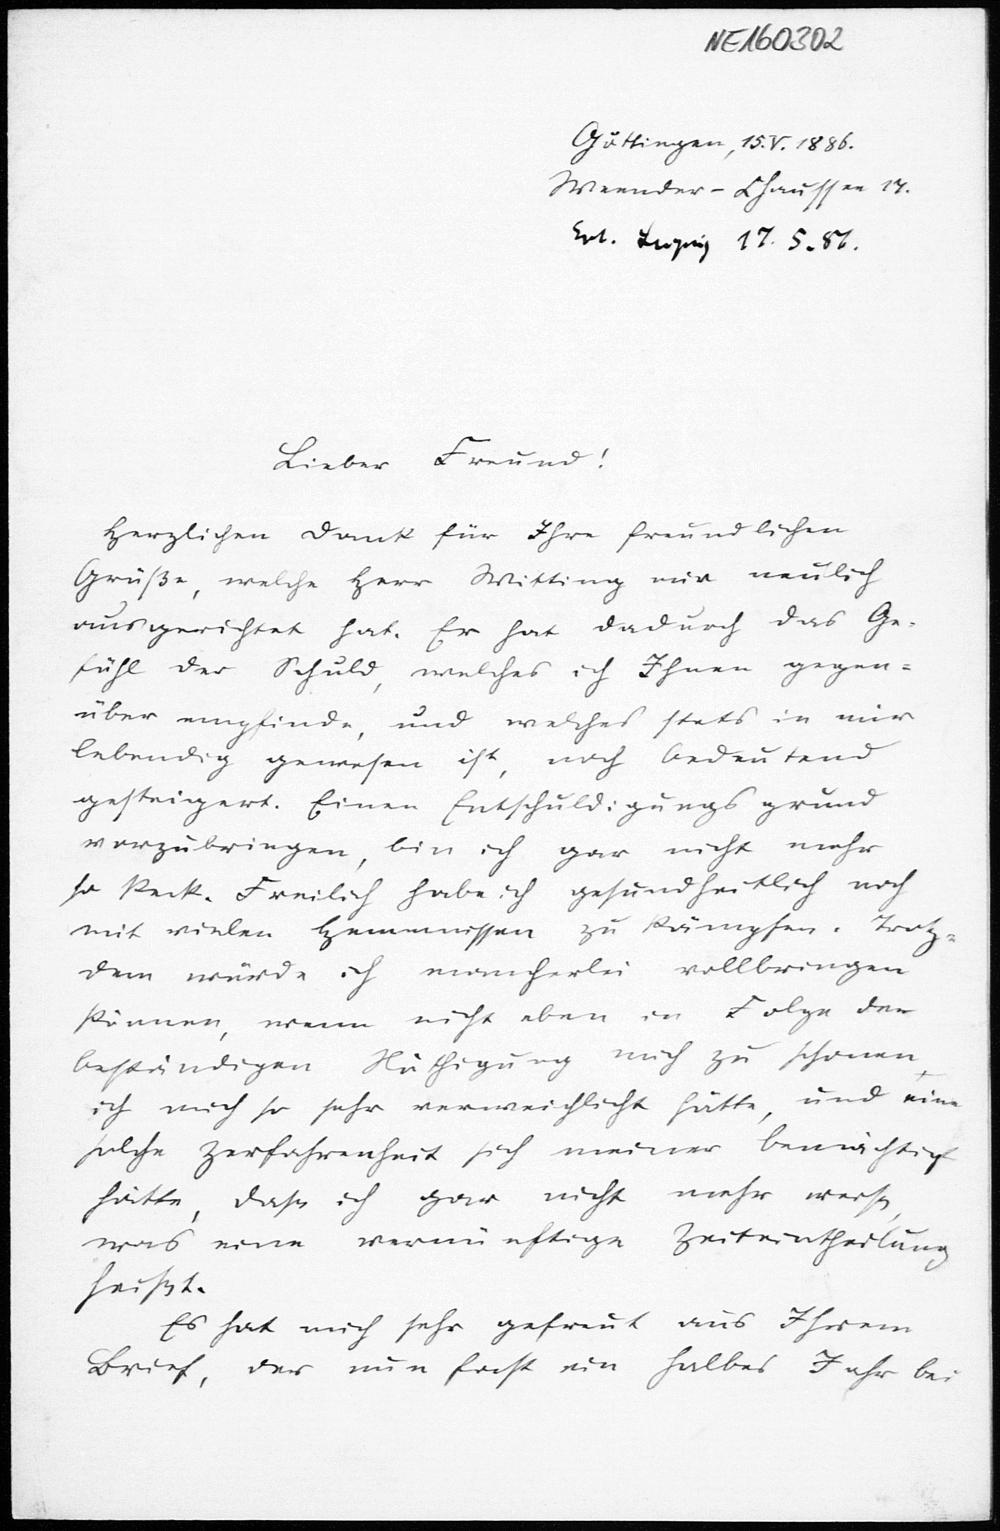 NE160302
Göttingen, 15.V.1886.
Weender-Chaussee 17.
Erl. Leipzig 17.5.86.
Lieber Freund!
Herzlichen Dank für Ihre freundlichen
Grüße, welche Herr Witting mir neulich
ausgerichtet hat. Er hat dadurch das Ge-
fühl der Schuld, welches ich Ihnen gegen-
über empfinde, und welches stets in mir
lebendig gewesen ist, noch bedeutend
gesteigert. Einen Entschuldigungsgrund
vorzubringen, bin ich gar nicht mehr
so keck. Freilich habe ich gesundheitlich noch
mit vielen Hemmnissen zu kämpfen. Trotz-
dem würde ich mancherlei vollbringen
können, wenn nicht eben in Folge der
beständigen Nöthigung mich zu schonen
ich mich so sehr verweichlicht hätte, und eine
solche Zerfahrenheit sich meiner bemächtigt
hätte, dass ich gar nicht mehr weiss,
was eine vernünftige Zeiteintheilung
heisst.
Es hat mich sehr gefreut aus Ihrem
Brief, der nun fast ein halbes Jahr bei